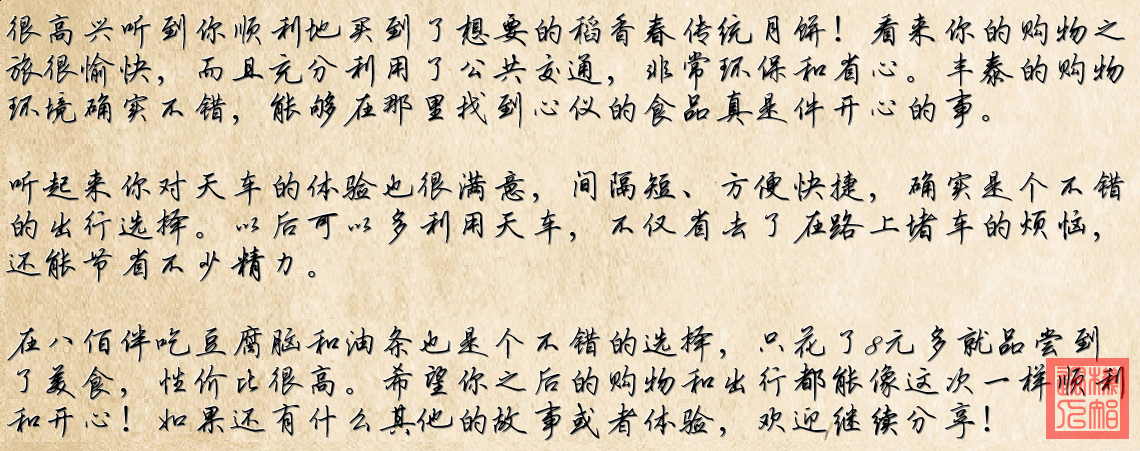 很高兴听到你顺利地买到了想要的稻香春传统月饼！看来你的购物之
旅很愉快，而且充分利用了公共交通，非常环保和省心。丰泰的购物
环境确实不错，能够在那里找到心仪的食品真是件开心的事。
听起来你对天车的体验也很满意，间隔短、方便快捷，确实是个不错
的出行选择。以后可以多利用天车，不仅省去了在路上堵车的烦恼，
还能节省不少精力。
在八佰伴吃豆腐脑和油条也是个不错的选择，只花了8元多就品尝到
了美食，性价比很高。希望你之后的购物和出行都能像这次一样顺利
和开心！如果还有什么其他的故事或者体验，欢迎继续分享！